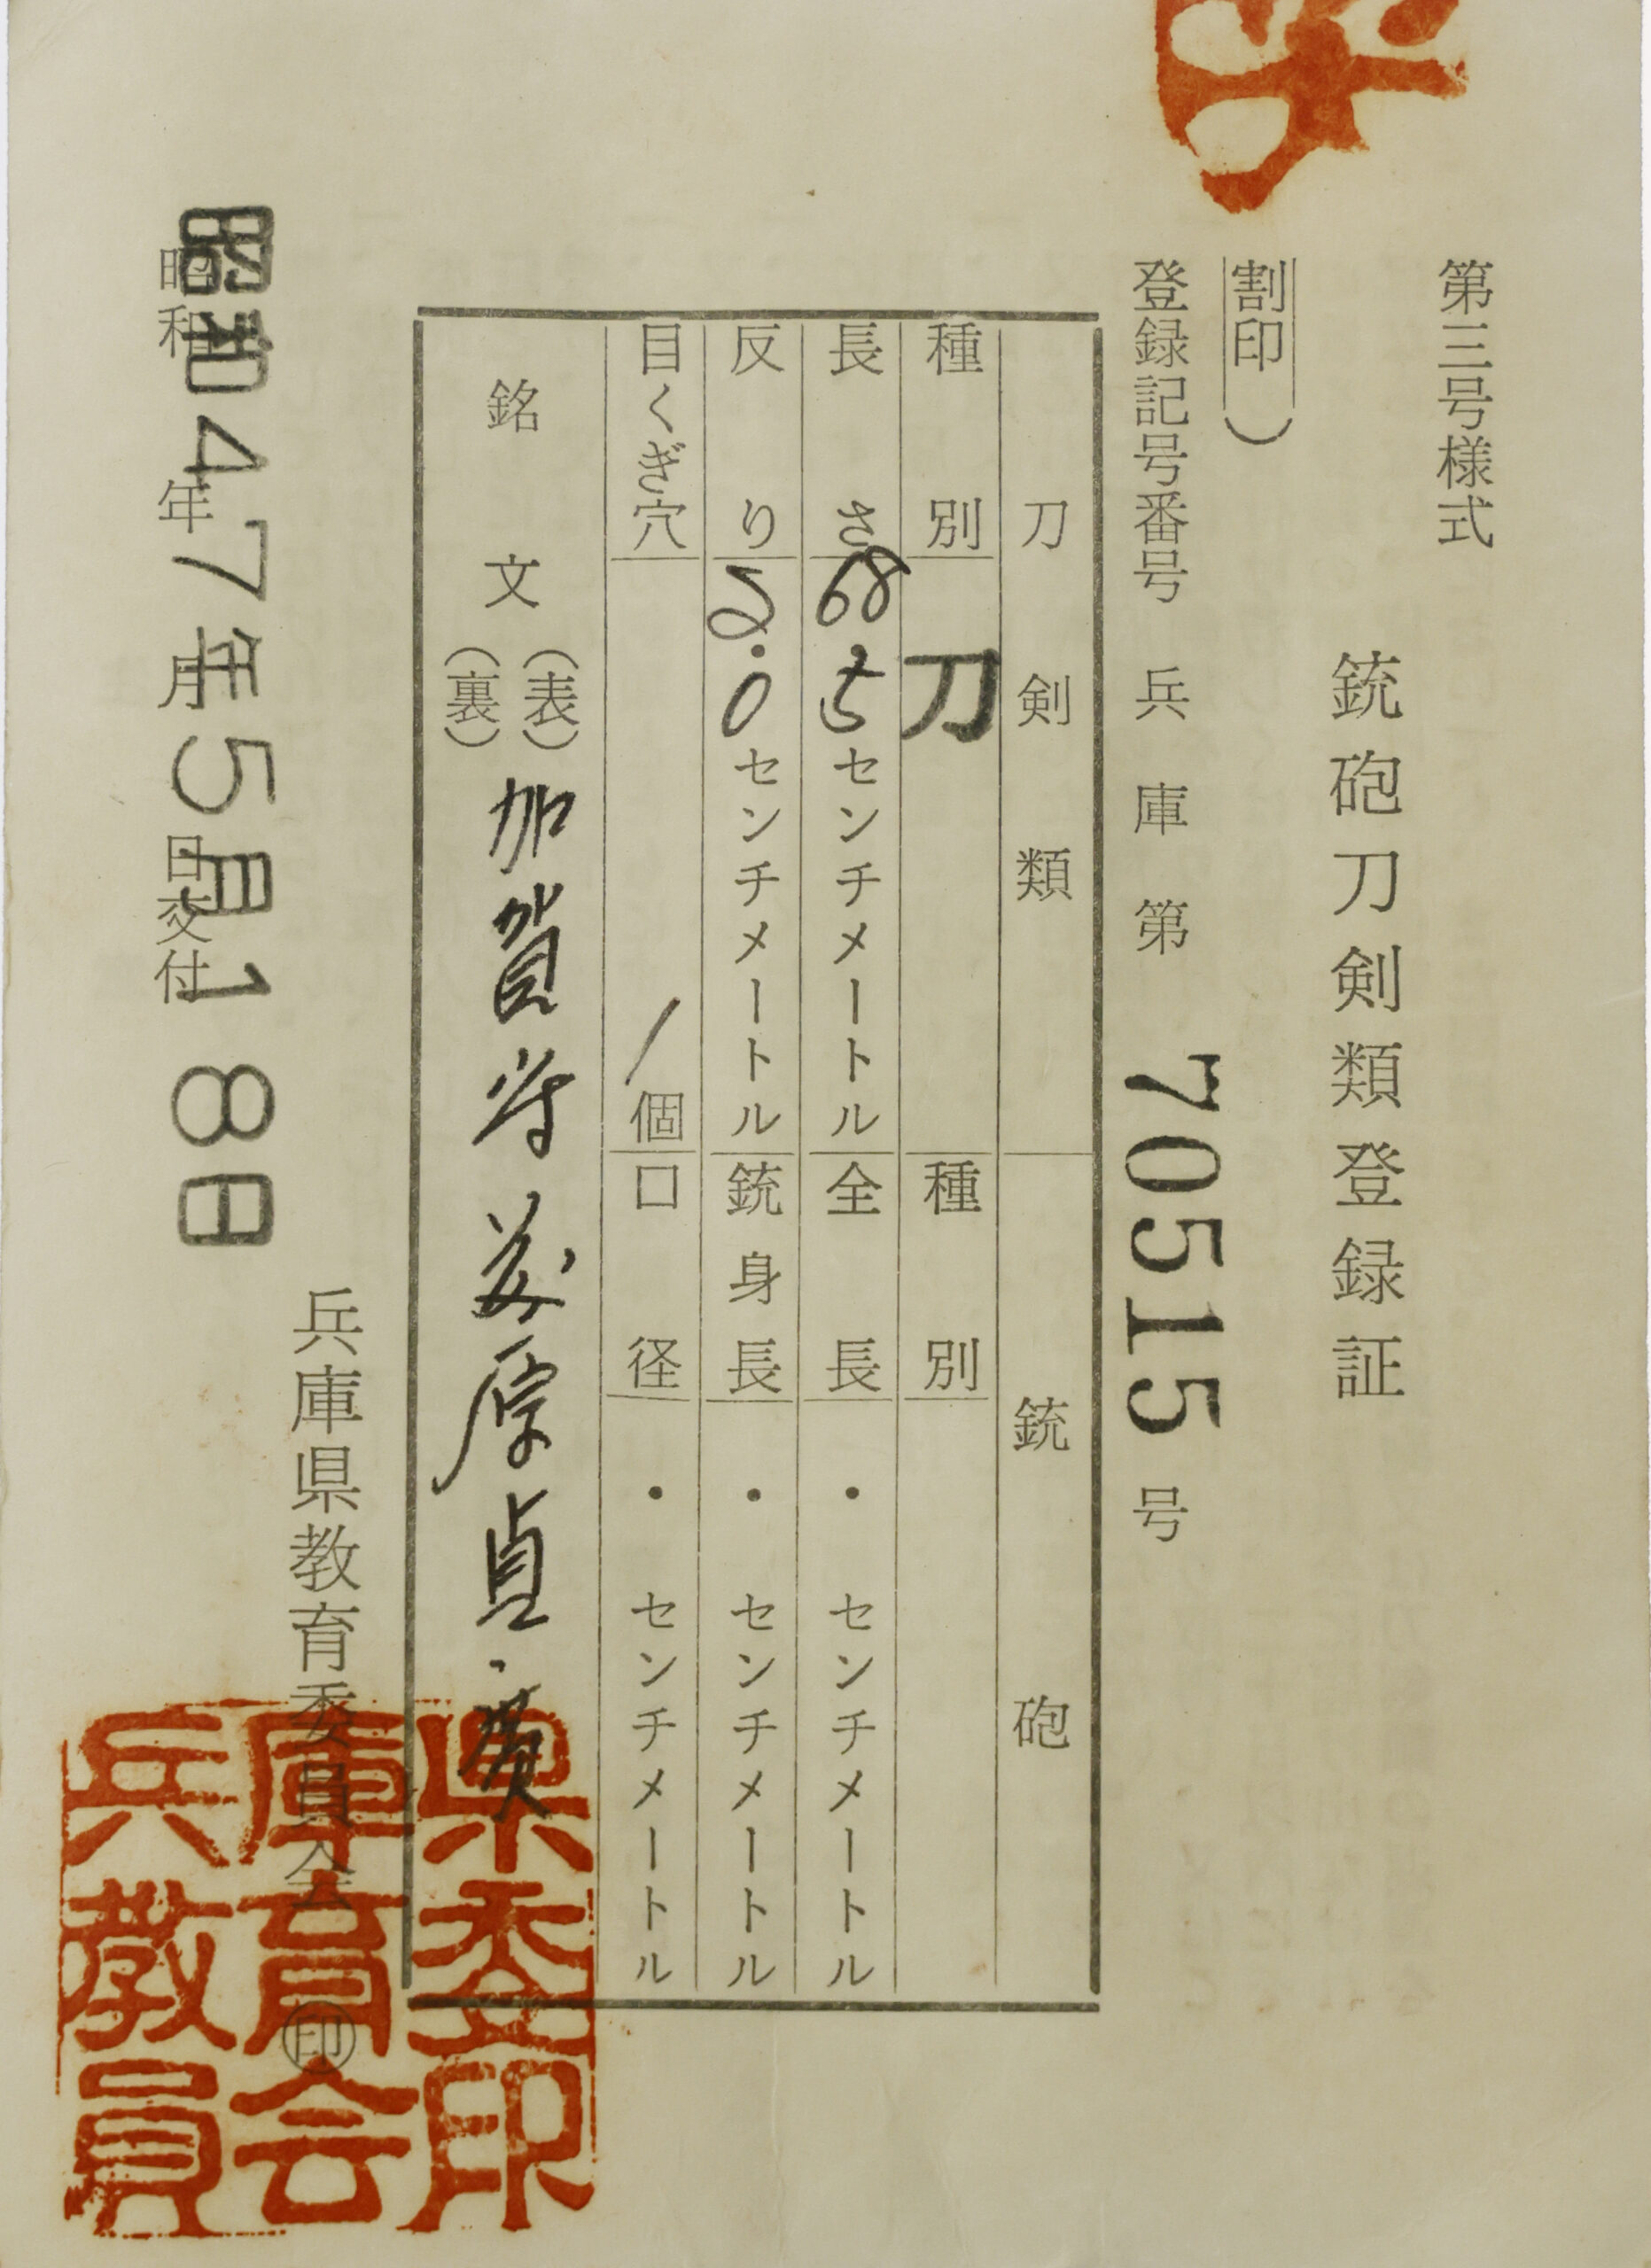 第三号様式
銃砲刀剣類登録証
(割印)
登録記号番号 兵庫第 70515 号
刀剣類 銃砲
種別 刀 種別
長さ 68.5 センチメートル 全長 ・ センチメートル
反り 2.0 センチメートル 銃身長 ・ センチメートル
目くぎ穴 1個 口径 ・ センチメートル
銘文 (表) 加賀守 藤原貞・廣
(裏)
兵庫県教育委員会 ㊞
昭和 年 月 日交付
昭和47年5月18日
県委印
庫育会
兵教員